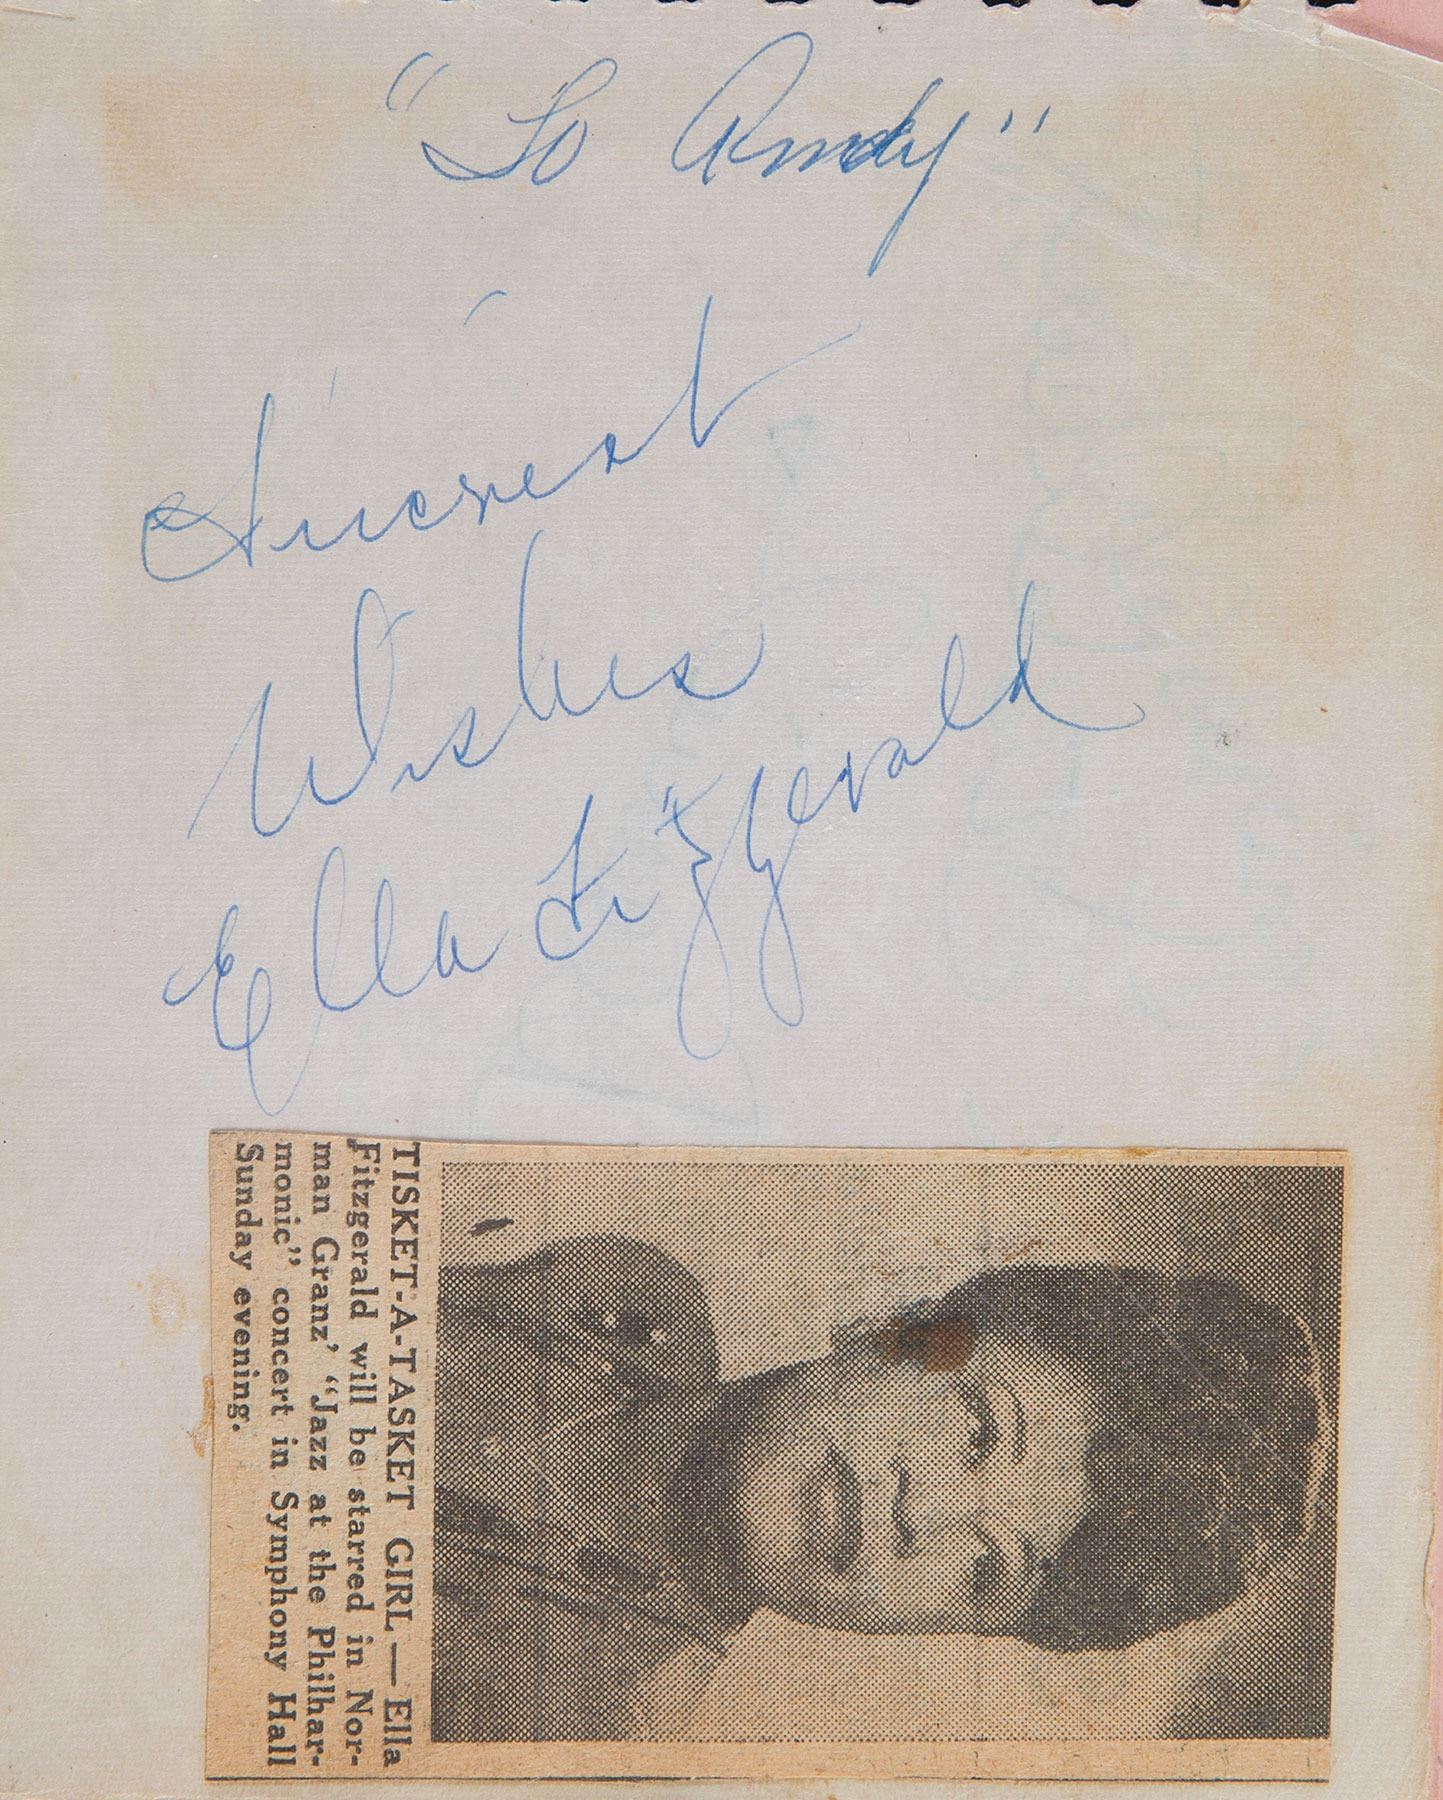 "To Andy"
Sincerest
Wishes
Ella Fitzgerald
TISKET-A-TASKET GIRL — Ella
Fitzgerald will be starred in Nor-
man Granz' "Jazz at the Philhar-
monic" concert in Symphony Hall
Sunday evening.